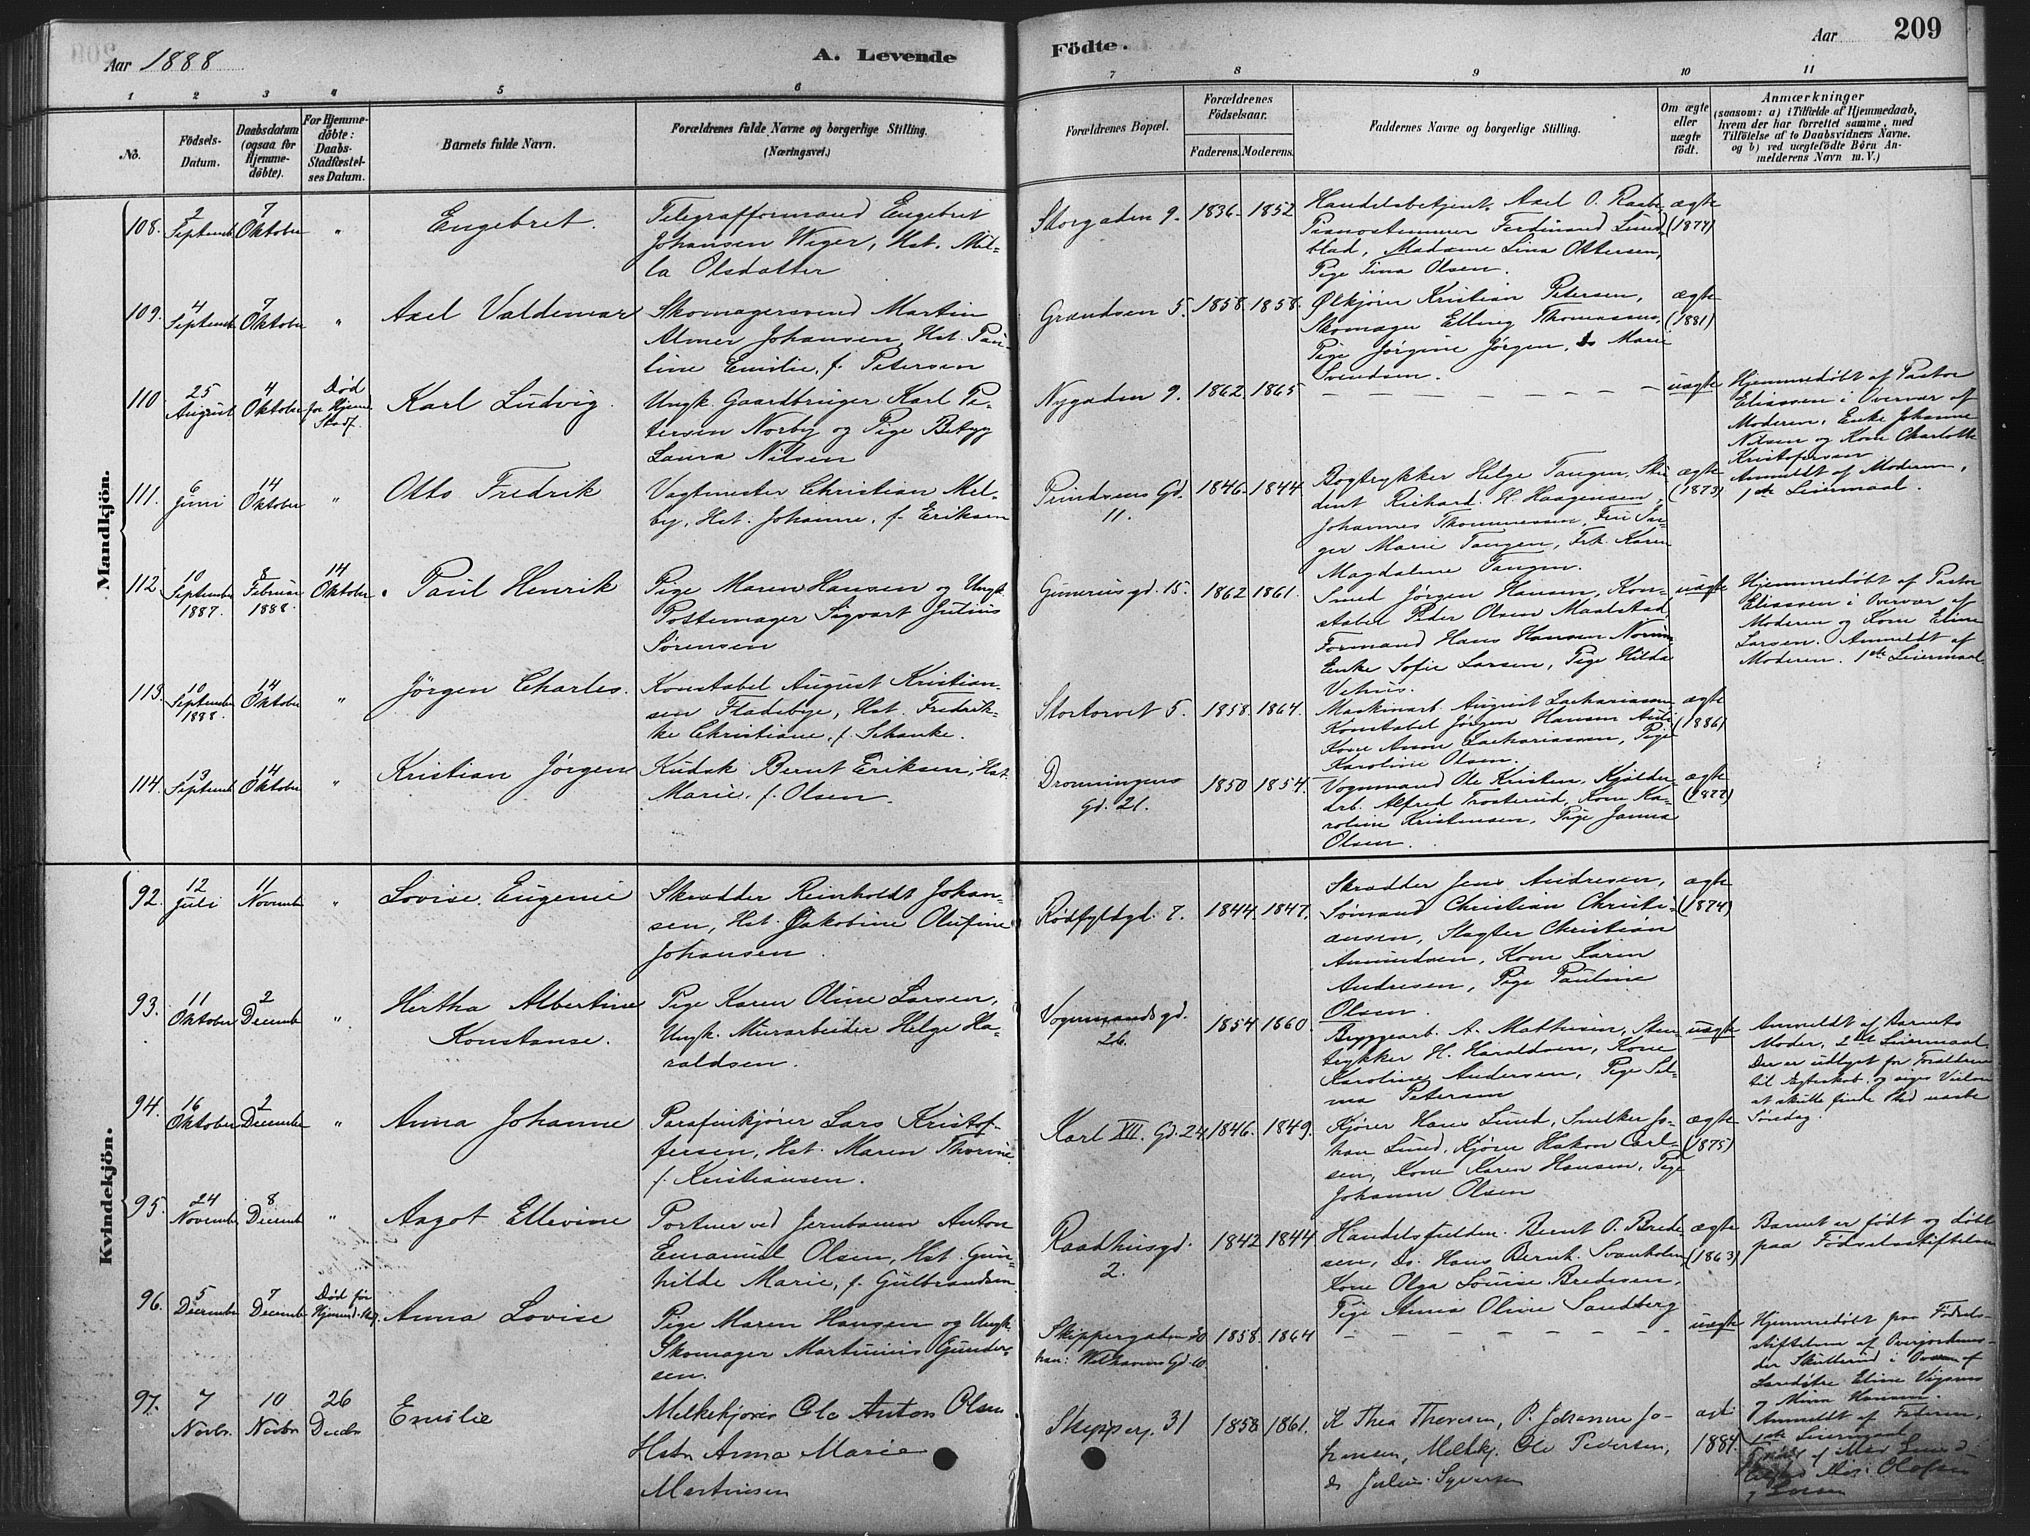 Aar 1888
A. Levende
Födte.
Aar
209
1 2 3 4 5 6 7 8 9 10 11
No.
Födsels-
Datum.
Daabsdatum
(ogsaa for
Hjemme-
døbte).
For Hjemme-
döbte:
Daabs-
Stadfæstel-
ses Datum.
Barnets fulde Navn.
Forældrenes fulde Navne og borgerlige Stilling.
(Næringsvei.)
Forældrenes Bopæl.
Forældrenes
Födselsaar.
Faderens. Moderens.
Faddernes Navne og borgerlige Stilling.
Om ægte
eller
uægte
født.
Anmærkninger
(saasom: a) i Tilfælde af Hjemmedaab,
hvem der har forrettet samme, med
Tilföielse af to Daabsvidners Navne.
og b) ved uægtefödte Børn An-
melderens Navn m. V.)
Mandkjön.
108. 2 September 7 Oktober "
Engebret.
Telegrafformand Engebret
Johansen Wiger, Hst. Mil-
la Olsdatter
Storgaden 9. 1836. 1852
Handelsbetjent. Axel O. Raabe
Pianostemmer Ferdinand Lund-
blad, Madame Lina Ottersen,
Pige Tina Olsen.
ægte
(1877)
109. 4 September 7 Oktober "
Axel Valdemar
Skomagersvend Martin
Almer Johansen, Hst. Pau-
line Emilie, f. Petersen
Grændsen 5. 1858. 1858.
Ølkjører Kristian Petersen,
Skomager Elling Thomassen,
Pige Jørgine Jørgen, Marie
Svendsen.
ægte
(1881)
110 25 August 4 Oktober
Død
for Hjemme
Stadf.
Karl Ludvig.
Ungk. Gaardbruger Karl Pe-
tersen Norby og Pige Betzy
Laura Nilsen
Nygaden 9. 1862. 1865
uægte
Hjemmedøbt af Pastor
Eliassen i Overvær af
Moderen, Enke Johanne
Nilsen og Kone Charlotte
Kristofersen
Anmeldt af Moderen,
1ste Leiermaal.
111. 6 Juni 14 Oktober "
Otto Fredrik
Vagtmester Christian Mel-
by, Hst. Johanne, f. Eriksen
Prindsens Gd.
11.
1846. 1844
Bogtrykker Helge Tangen, Stu-
dent Richard H. Haagensen,
Johannes Thommessen,
ger Marie Tangen, Frk. Karen
Magdalene Tangen.
ægte
(1873)
112 10 September 1887. 8 Februar 1888. 14 Oktober
Paul Henrik
Pige Maren Hansen og Ungk.
Postemager Sigvart Julius
Sørensen
Gunerius gd. 15. 1862 1861.
Smed Jørgen Hansen, Kon-
stabel Peder Olsen Maalstad,
Formand Hans Hansen
Enke Sofie Larsen, Pige Hilda
uægte
Hjemmedøbt af Pastor
Eliassen i Overvær af
Moderen og Kone Eline
Larsen. Anmeldt af
Moderen. 1ste Leiermaal.
113. 10 September 1888. 14 Oktober "
Jörgen Charles.
Konstabel August Kristian-
sen Fladebye, Hst. Fredrik-
ke Christiane, f. Schanke.
Stortorvet 5. 1858. 1864.
Maskinarb. August Zachariassen
Konstabel Jörgen Hansen
Kone Anne Zachariassen, Pige
Karoline Olsen.
ægte
(1886)
114. 13 September 14 Oktober "
Kristian Jörgen
Kudsk Bernt Eriksen, Hst.
Marie, f. Olsen.
Dronningens
gd. 21.
1850 1854.
Vognmand Ole Kristen,
arb. Alfred Trosterud, Kone Ka-
roline Kristensen, Pige Janna
Olsen.
ægte
(1877)
Kvindekjön.
92. 12 Juli 11 November "
Lovise. Eugenie
Skrædder Reinholdt Johan-
sen, Hst. Jakobine Olufine
Johansen.
Rødfyldgd. 7. 1844. 1847.
Skrædder Jens Andresen,
Sømand Christian Christi-
ansen, Slagter Christian
Amundsen, Kone Karen
Andresen, Pige Pauline
Olsen.
ægte
(1874)
93. 11 Oktober 2 December "
Hertha Albertine
Konstanse.
Pige Karen Oline Larsen,
Ungk. Murarbeider Helge Ha-
raldsen.
Vognmandsgd.
26.
1854 1860.
Bryggearb. A. Mathisen, Sten-
trykker H. Haraldsen, Kone
Karoline Andersen, Pige Sel-
ma Petersen
uægte
Anmeldt af Barnets
Moder, 2det Leiermaal.
Der er udlyst for Forældrene
til Egteskab. og siges Vielsen
at skulle finde Sted næste
Søndag.
94. 16 Oktober 2 December "
Anna Johanne
Parafinkjører Lars Kristof-
fersen, Hst. Maren Thorine
f. Kristiansen.
Karl XII. Gd. 24 1846. 1849.
Kjører Hans Lund, Snelker Jo-
han Lund, Kjører Hakon Carl-
sen, Kone Karen Hansen, Pige
Johanne Olsen
ægte
(1875)
95. 24 November 8 December "
Aagot Ellevine
Portner ved Jernbanen Anton
Emanuel Olsen, Hst. Gun-
hilde Marie, f. Gulbrandsen
Raadhusgd.
2.
1842 1844
Handelsfuldm. Bernt O. Brede-
sen, Ds. Hans Bernh. Svanholm
Kone Olga Louise Bredesen,
Pige Anna Oline Sandberg
ægte
(1863)
Barnet er født og døbt
paa Fødselsstiftelsen
96. 5 December 7 December
Død før
Hjemmed. Stadf.
Anna Lovise
Pige Maren Hansen og Ungk.
Skomager Martinius Gunder-
sen.
Skippergaden 30
han: Welhavens Gd. 10
1858. 1864
uægte
Hjemmedøbt paa Fødsels-
stiftelsen af Overjordemo-
der Skullerud i Overv. af
Eline
og Hansen.
Anmeldt af Faderen,
1ste Leiermaal
97. 7 Novbr. 10 Novbr 26 Decbr
Emilie
Melkekjører Ole Anton Olsen
Hstr Anna Marie
Martinsen
Skipperg. 31 1858 1861.
K. Thea Thoresen, P. Johanne Jo-
hansen, Melkekj. Ole Pedersen,
ds Julius Syversen
ægt
1884.
Olafsen
og Larsen